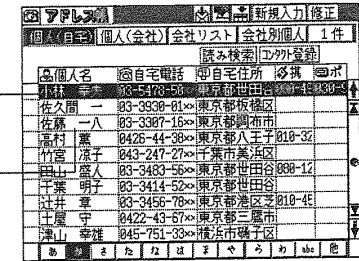 アドレス帳 新規入力 修正
個人(自宅) 個人(会社) 会社リスト 会社別個人 1件
読み検索 コンタクト登録
個人名 自宅電話 自宅住所 携 ポ
小林 03-5478-58×× 東京都世田谷
佐久間 一 03-3930-01×× 東京都板橋区
佐藤 一八 03-3307-66×× 東京都調布市
高村 薫 0426-44-30×× 東京都八王子 010-32
竹宮 涼子 043-247-27×× 千葉市美浜区
田山 盛人 03-3483-56×× 東京都世田谷 080-12
千葉 明子 03-3414-52×× 東京都世田谷
辻井 章 03-3456-78×× 東京都港区芝 010-45
土屋 守 0422-43-67×× 東京都三鷹市
津山 幸雄 045-751-33×× 横浜市磯子区
あ か さ た な は ま や ら わ abc 他